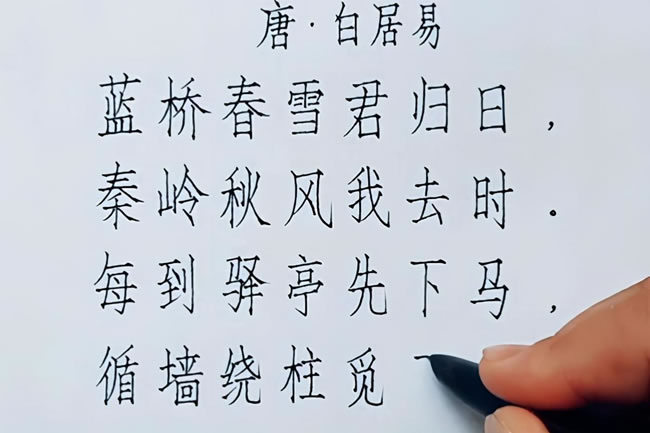 唐·白居易
蓝桥春雪君归日，
秦岭秋风我去时。
每到驿亭先下马，
循墙绕柱觅